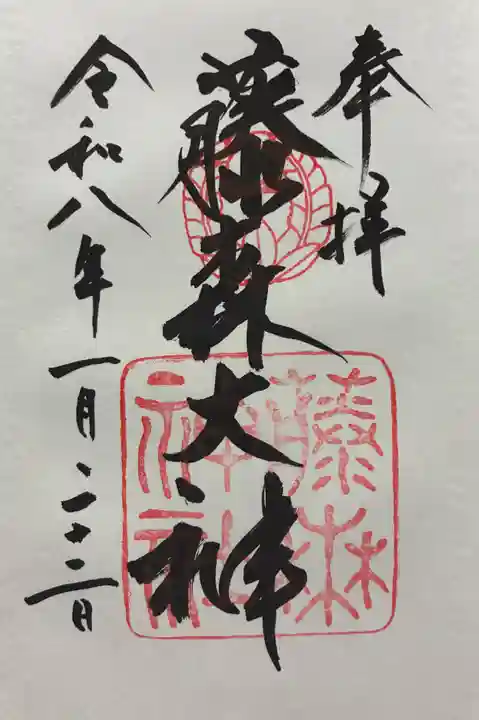 奉拝
藤森大神
藤森
神社
令和八年一月二十二日